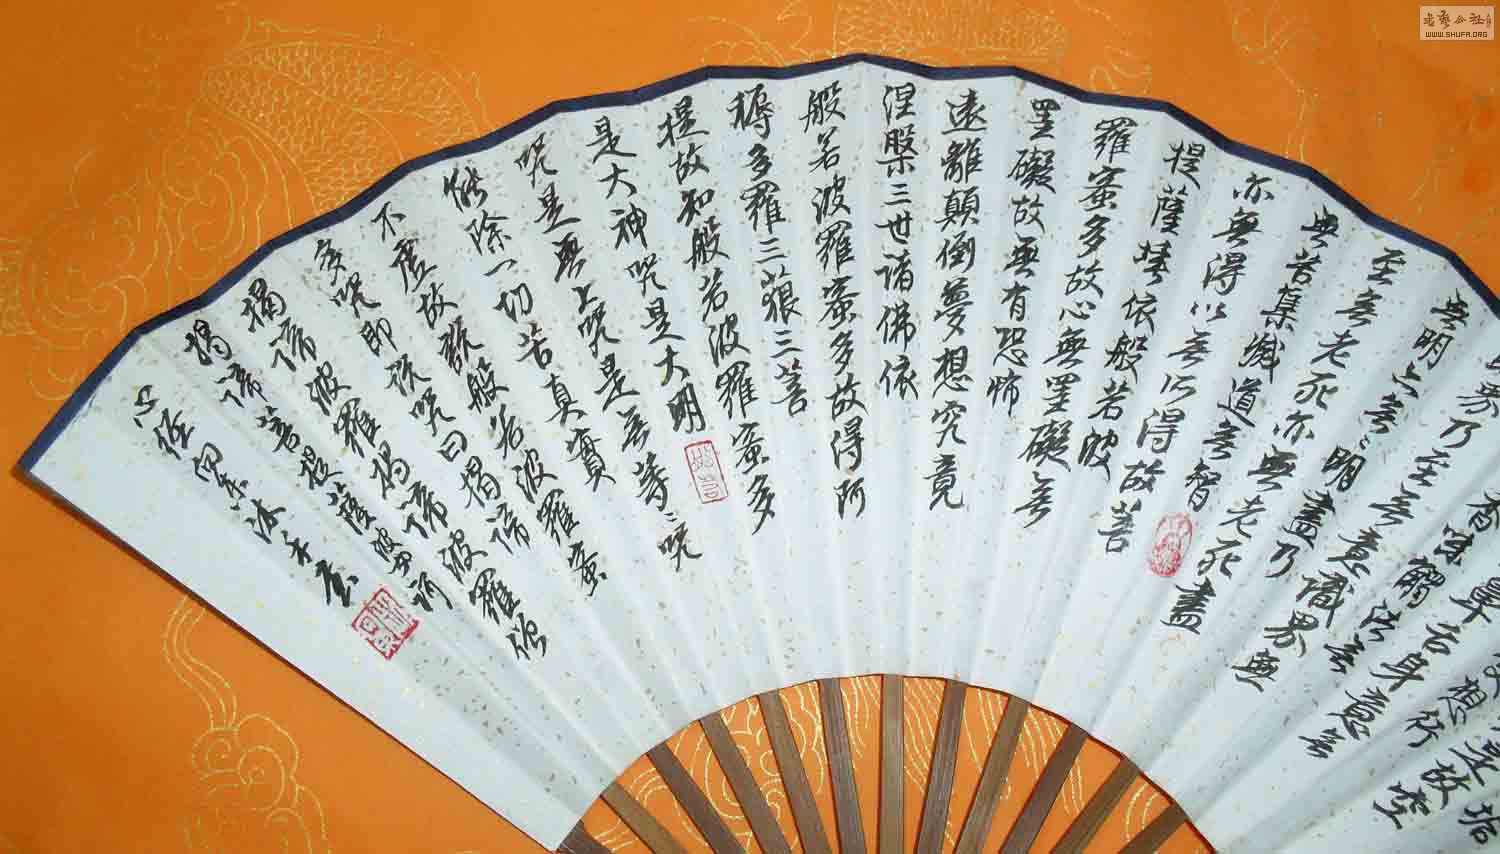 垢
是故空
想行
鼻舌身意无
香味觸法无
界乃至无意識界無
無明亦无〻明盡乃
至无老死亦無老死盡
無苦集滅道无智
亦無得以无所得故菩
提薩埵依般若波
羅蜜多故心無罣礙无
罣礙故無有恐怖
遠離顛倒夢想究竟
涅槃三世諸佛依
般若波羅蜜多故得阿
耨多羅三藐三菩
提故知般若波羅蜜多
是大神咒是大明
咒是無上咒是无等〻咒
能除一切苦真實
不虛故說般若波羅蜜
多咒即說咒曰揭諦
揭諦波羅揭諦波羅僧
揭諦菩提薩婆訶
心經
WWW.SHUFA.ORG